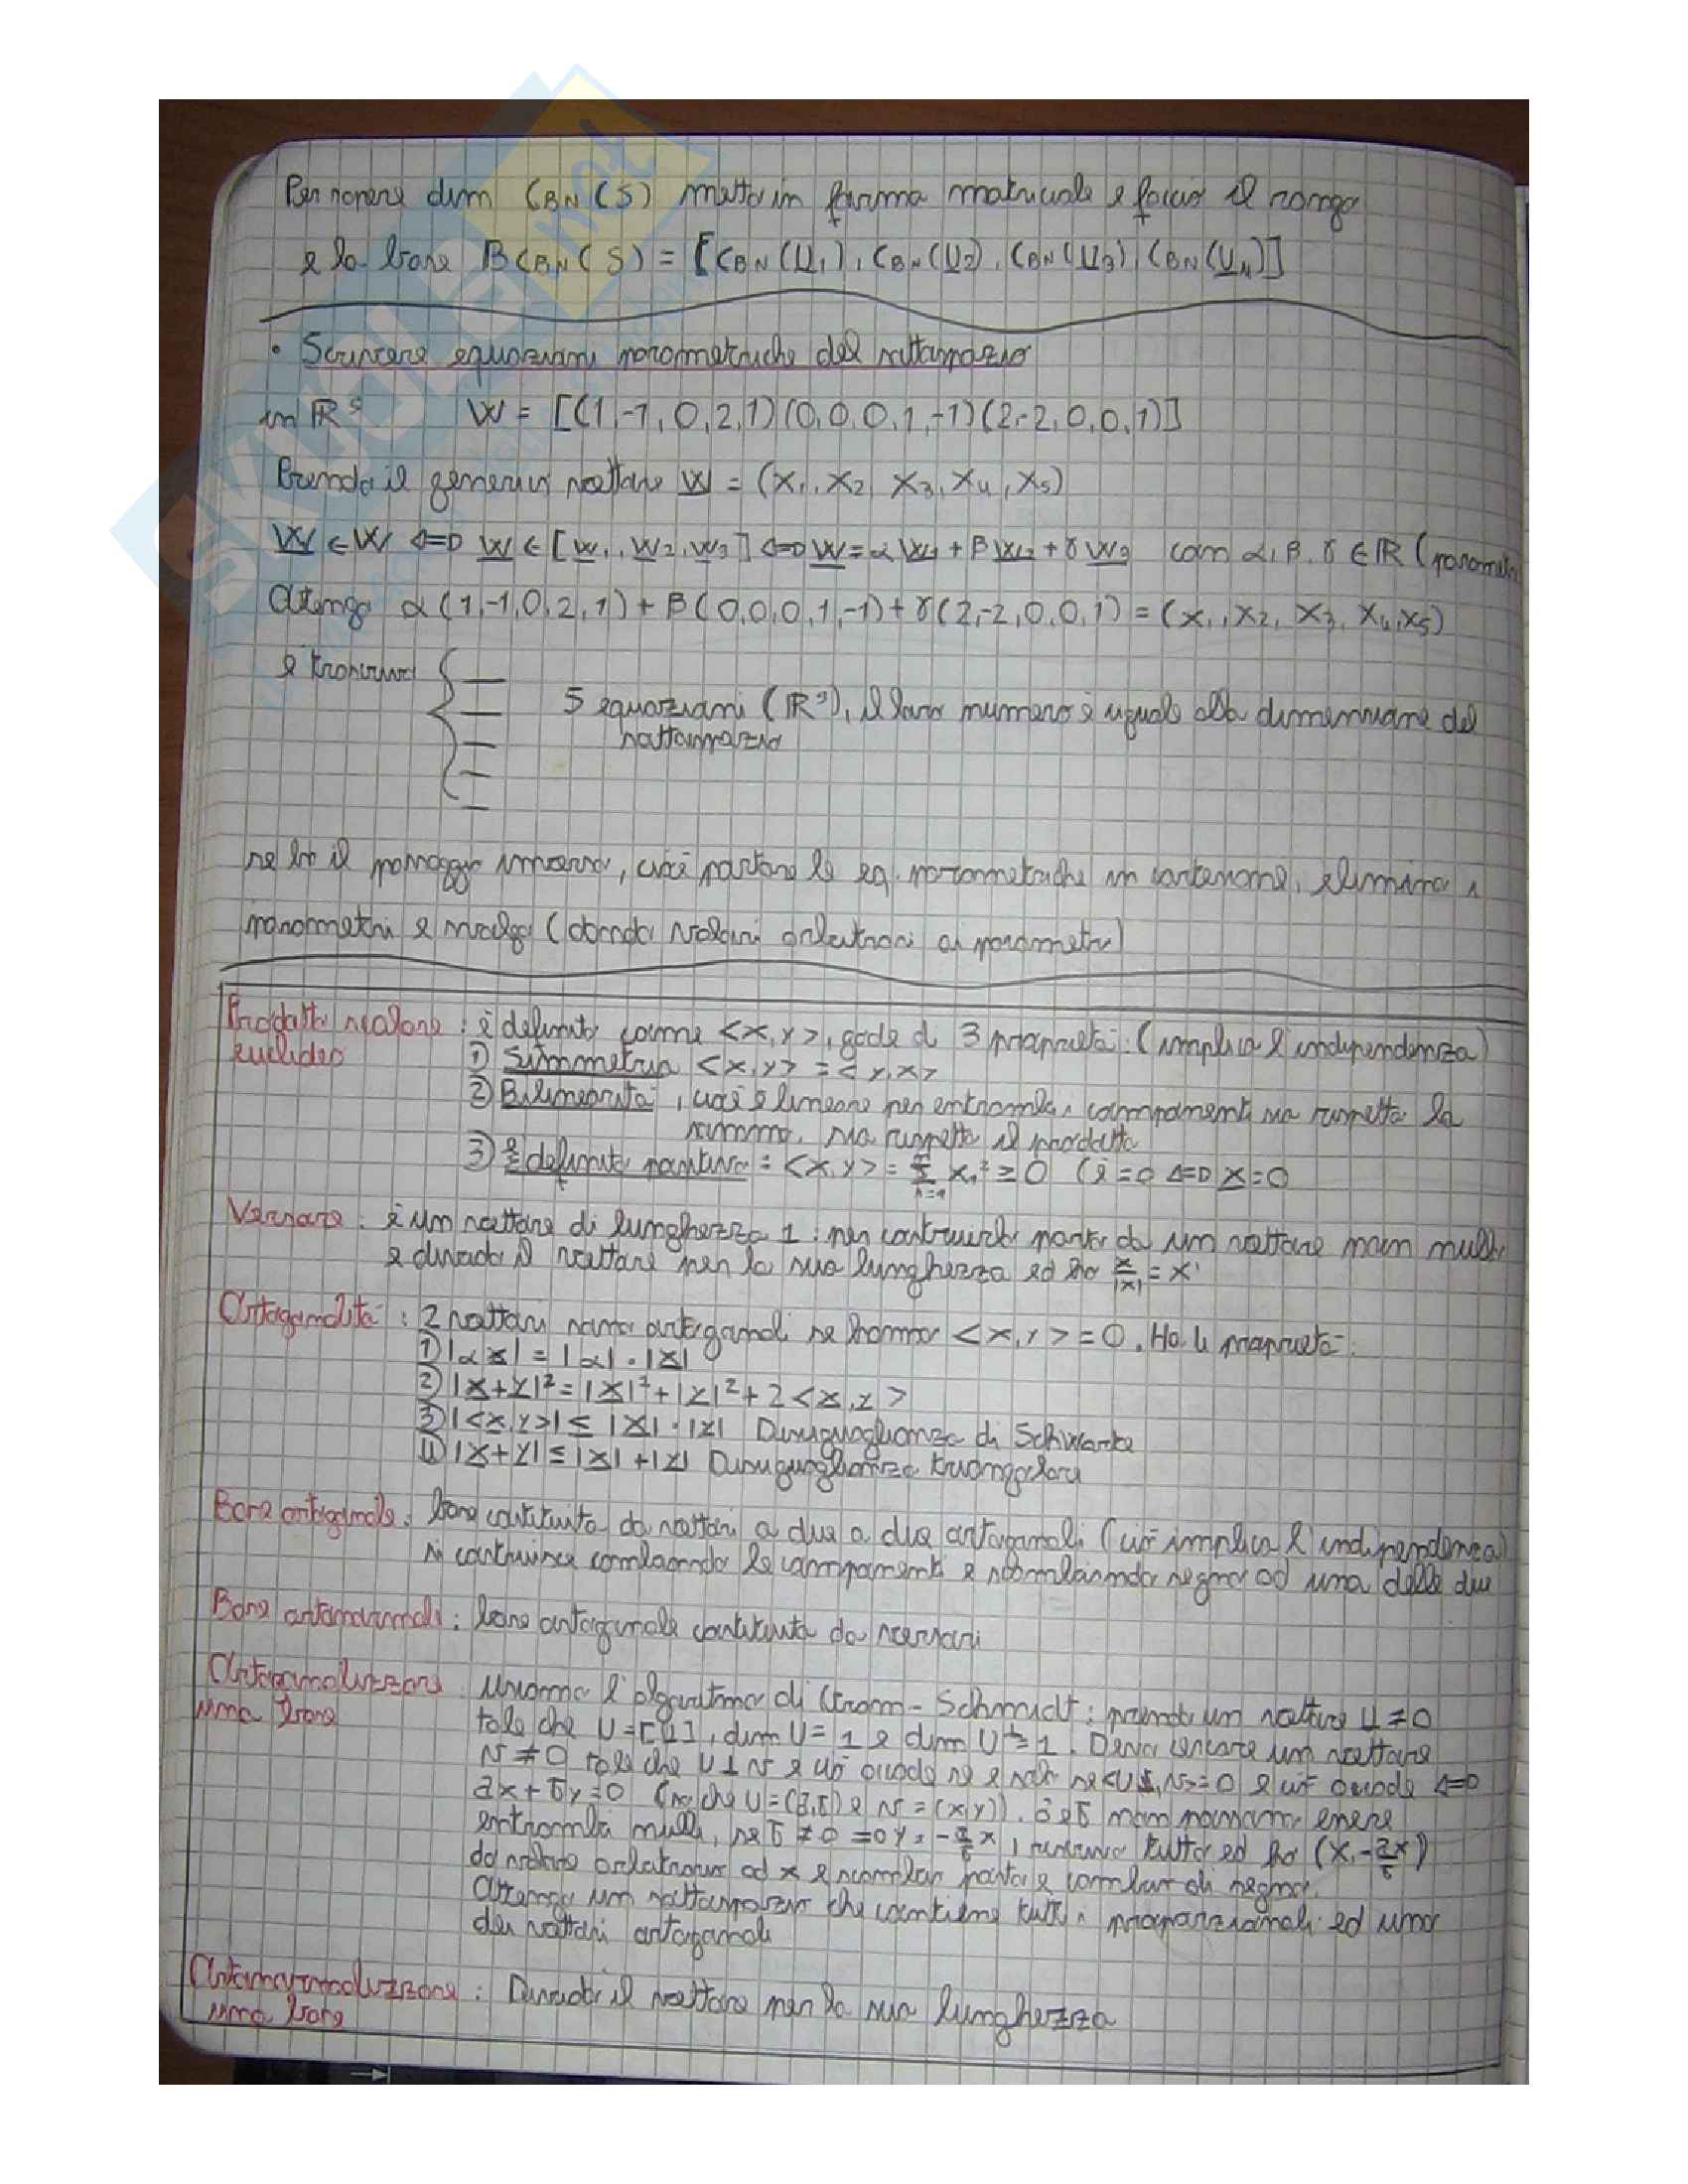 Per sapere dim CBN(S) metto in forma matriciale e faccio il rango
e la base BCBN(S) = [CBN(U1), CBN(U2), CBN(U3), CBN(U4)]
• Scrivere equazioni parametriche del sottospazio
in ℝ⁵ W = [(1,-1,0,2,1)(0,0,0,1,-1)(2,-2,0,0,1)]
Prendo il generico vettore W = (X1, X2, X3, X4, X5)
W ∈ W <=> W ∈ [W1, W2, W3] <=> W = α W1 + β W2 + γ W3 con α, β, γ ∈ ℝ (parametri
Ottengo α(1,-1,0,2,1) + β(0,0,0,1,-1) + γ(2,-2,0,0,1) = (X1, X2, X3, X4, X5)
e troverò {
5 equazioni (ℝ⁵), il loro numero è uguale alla dimensione del
sottospazio
se ho il passaggio inverso, cioè portare le eq. parametriche in cartesiane, elimino i
parametri e svolgo (dando valori arbitrari ai parametri)
Prodotto scalare : è definito come <X,Y>, gode di 3 proprietà: (implica l'indipendenza)
euclideo
① Simmetria <X,Y> = <Y,X>
② Bilinearità, cioè è lineare per entrambi i componenti sia rispetto la
somma, sia rispetto il prodotto
③ È definito positivo = <X,Y> = Σ Xi² ≥ 0 (è =0 <=> X = 0
Versore : è un vettore di lunghezza 1 : per costruirlo parto da un vettore non nullo
e divido il vettore per la sua lunghezza ed ho X/|X| = X'
Ortogonalità : 2 vettori sono ortogonali se hanno <X,Y> = 0. Ha le proprietà:
① |αX| = |α|·|X|
② |X+Y|² = |X|² + |Y|² + 2<X,Y>
③ |<X,Y>| ≤ |X|·|Y| Disuguaglianza di Schwartz
④ |X+Y| ≤ |X| + |Y| Disuguaglianza triangolare
Base ortogonale : base costituita da vettori a due a due ortogonali (ciò implica l'indipendenza)
si costruisce cambiando le componenti e scambiando segno ad una delle due
Base ortonormale : base ortogonale costituita da versori
Ortogonalizzare : usiamo l'algoritmo di Gram-Schmidt : prendo un vettore U ≠ 0
una base
tale che U = [U], dim U = 1 e dim U⊥ = 1. Devo cercare un vettore
V ≠ 0 tale che U ⊥ V e ciò accade se e solo se <U,V> = 0 e ciò accade <=>
ax + by = 0 (so che U = (a,b) e V = (x,y)). a e b non possono essere
entrambi nulli, se b ≠ 0 => y = -a/b x, riscrivo tutto ed ho (x, -ax/b)
do valore arbitrario ad x e scambio posto e cambio di segno.
Ottengo un sottospazio che contiene tutti i proporzionali ed uno
dei vettori ortogonali
Ortonormalizzare : Divido il vettore per la sua lunghezza
una base